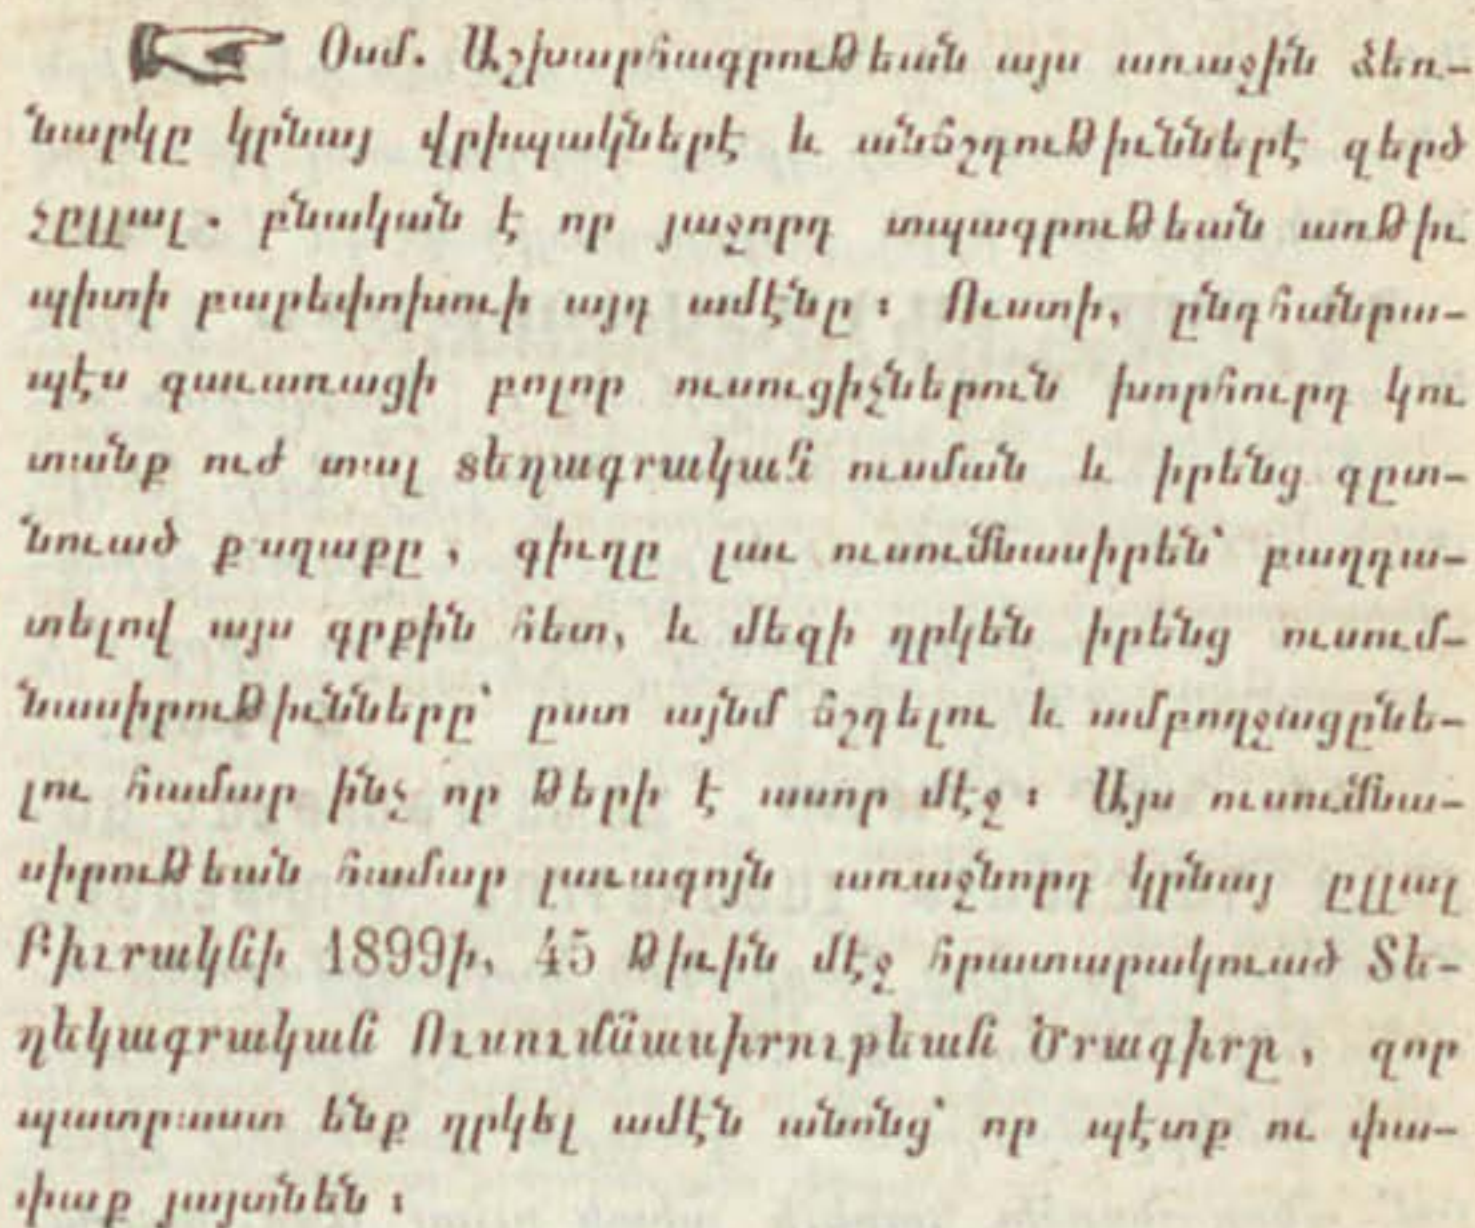 ☞ Օսմ. Աշխարհագրութեան այս առաջին ձեռ-
նարկը կրնայ վրիպակներէ և անճշդութիւններէ զերծ
չըլլալ. բնական է որ յաջորդ տպագրութեան առթիւ
պիտի բարեփոխուի այդ ամէնը։ Ուստի, ընդհանրա-
պէս գաւառացի բոլոր ուսուցիչներուն խորհուրդ կու
տանք ուժ տալ տեղագրական ուսման և իրենց գըտ-
նուած քաղաքը, գիւղը լաւ ուսումնասիրեն՝ բաղդա-
տելով այս գրքին հետ, և մեզի ղրկեն իրենց ուսում-
նասիրութիւնները՝ ըստ այնմ ճշդելու և ամբողջացընե-
լու համար ինչ որ թերի է ասոր մէջ։ Այս ուսումնա-
սիրութեան համար լաւագոյն առաջնորդ կրնայ ըլլալ
Բիւրակնի 1899ի, 45 թիւին մէջ հրատարակուած Տե-
ղեկագրական Ուսումնասիրութեան Ծրագիրը, զոր
պատրաստ ենք ղրկել ամէն անոնց՝ որ պէտք ու փա-
փաք յայտնեն։